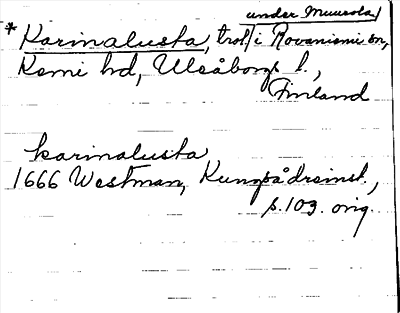 under Muurola/
* Karinalusta, trol/i Rovaniemi sn,
Kemi hd, Uleåborgs l.,
Finland
karinalusta
1666 Westman, Kungsådreinst.,
s. 103. orig.